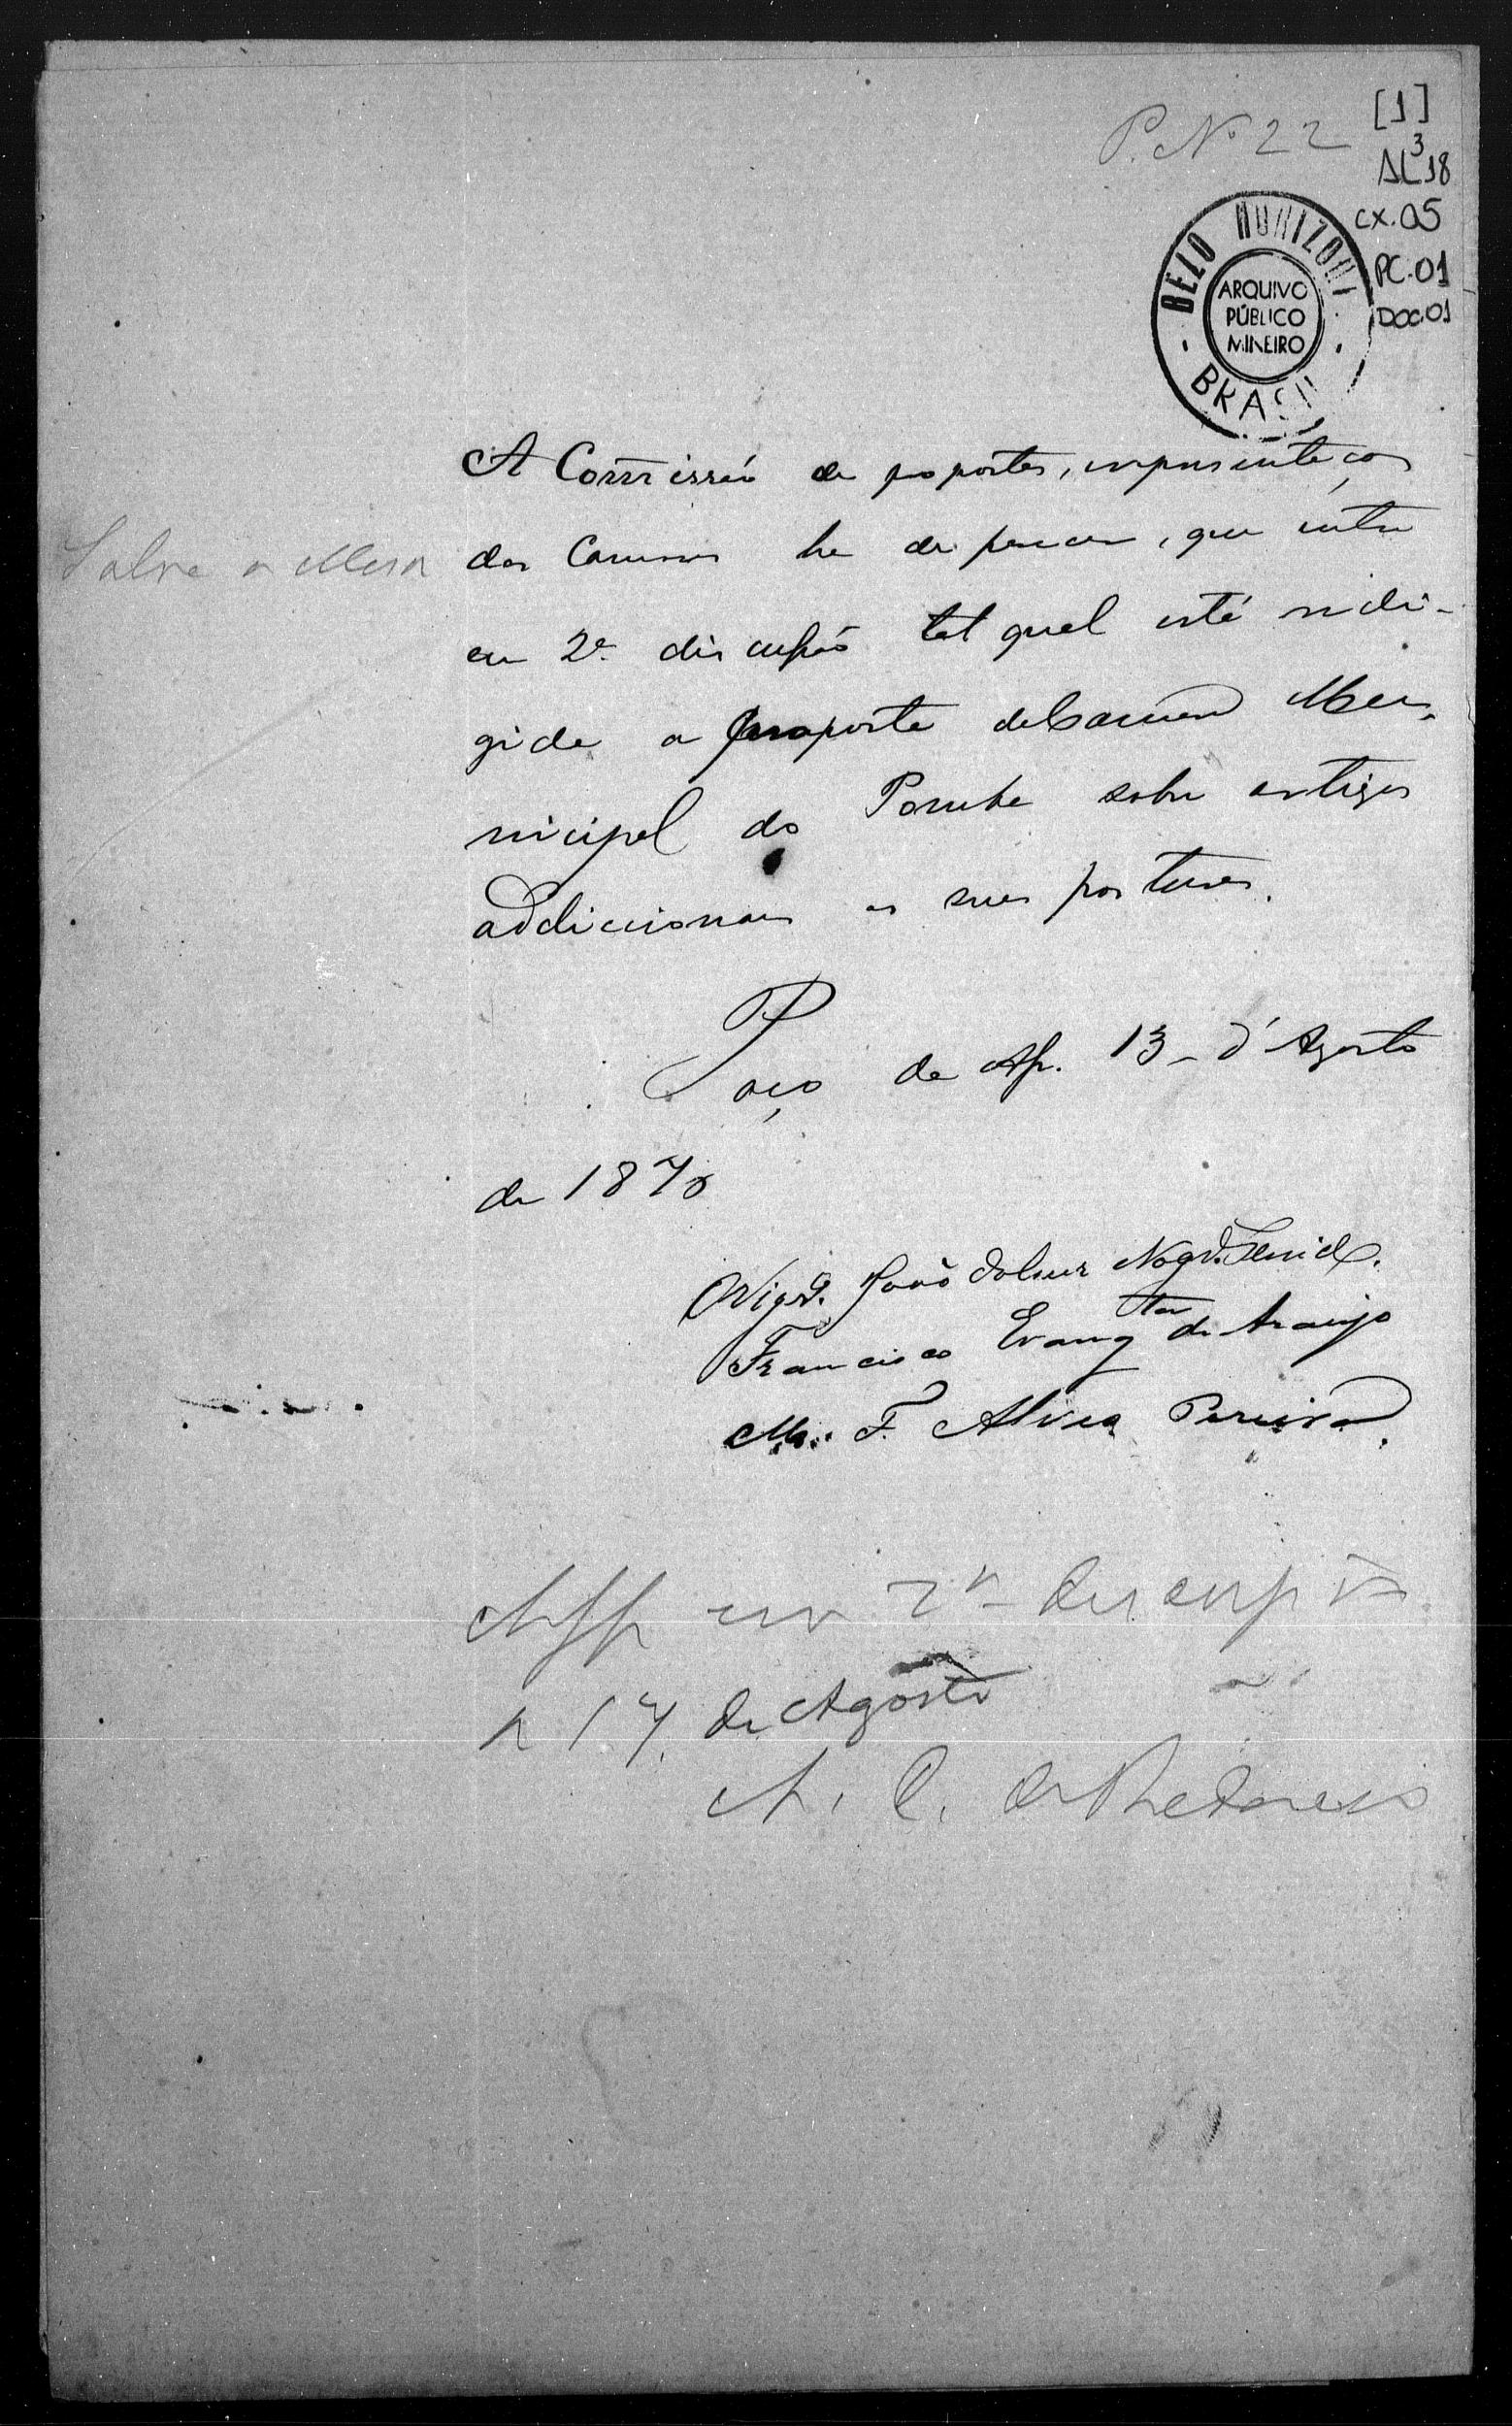 P. Nº 22
[1]
AL³18
cx.05
PC.01
DOC.01
BELO HORIZONTE
ARQUIVO
PÚBLICO
MINEIRO
BRASIL
A Commissão de propostas, representações
das Camaras he de parecer, que entre
Salve a Mesa
em 2ª discussão tal qual está redi-
gida a proposta da Camara Mu-
nicipal do Pomba sobre artigos
addicionaes as suas posturas.
Paço da Ap. 13 d'Agosto
de 187
Vigr.º João
Francisco Evang.ta de Araujo
M. F. Alves Pereira.
App em 2ª discussão
a 17 de Agosto
A. C.